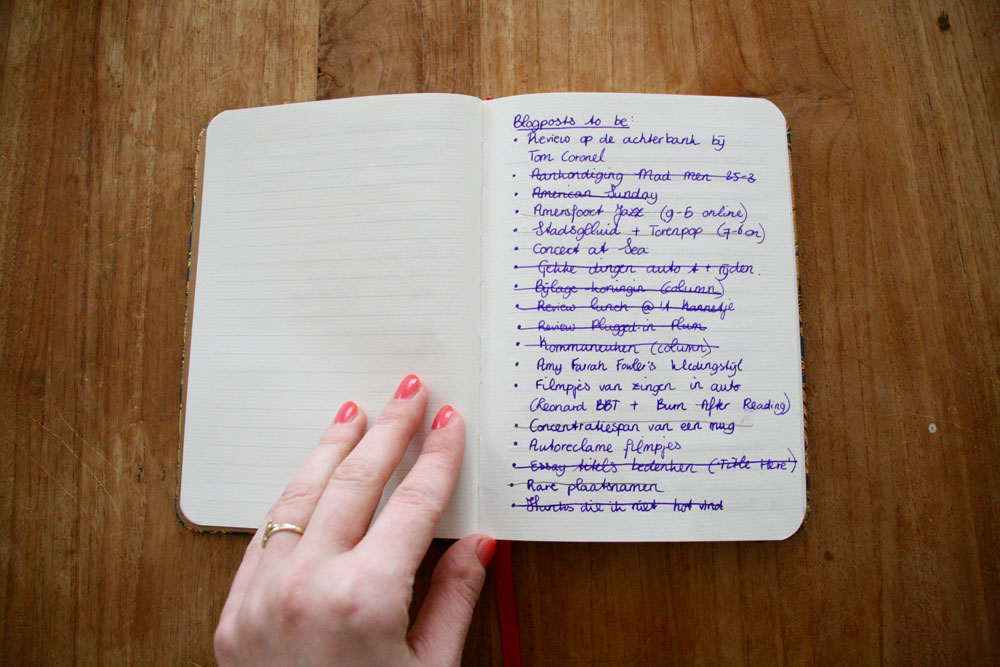 Blogposts to be:
• Review op de achterbank bij
Tom Coronel
• Aankondiging Mad Men
• American Sunday
• Amersfoort Jazz (9-6 online)
• Stadsgeluid + Torenpop (7-6 on)
• Concert at Sea
• Gekke dingen auto + rijden.
• Bijlage koningin (column)
• Review lunch @ 't Kannetje
• Review Plugged-in Plum
• Kommaneuken (column)
• Amy Farrah Fowler's kledingstijl
• Filmpjes van zingen in auto
(Leonard BBT + Burn After Reading)
• Concentratiespan van een mug
• Autoreclame filmpjes
• Essay titels bedenken ('Title Here')
• Rare plaatsnamen
• Hunks die ik niet hot vind